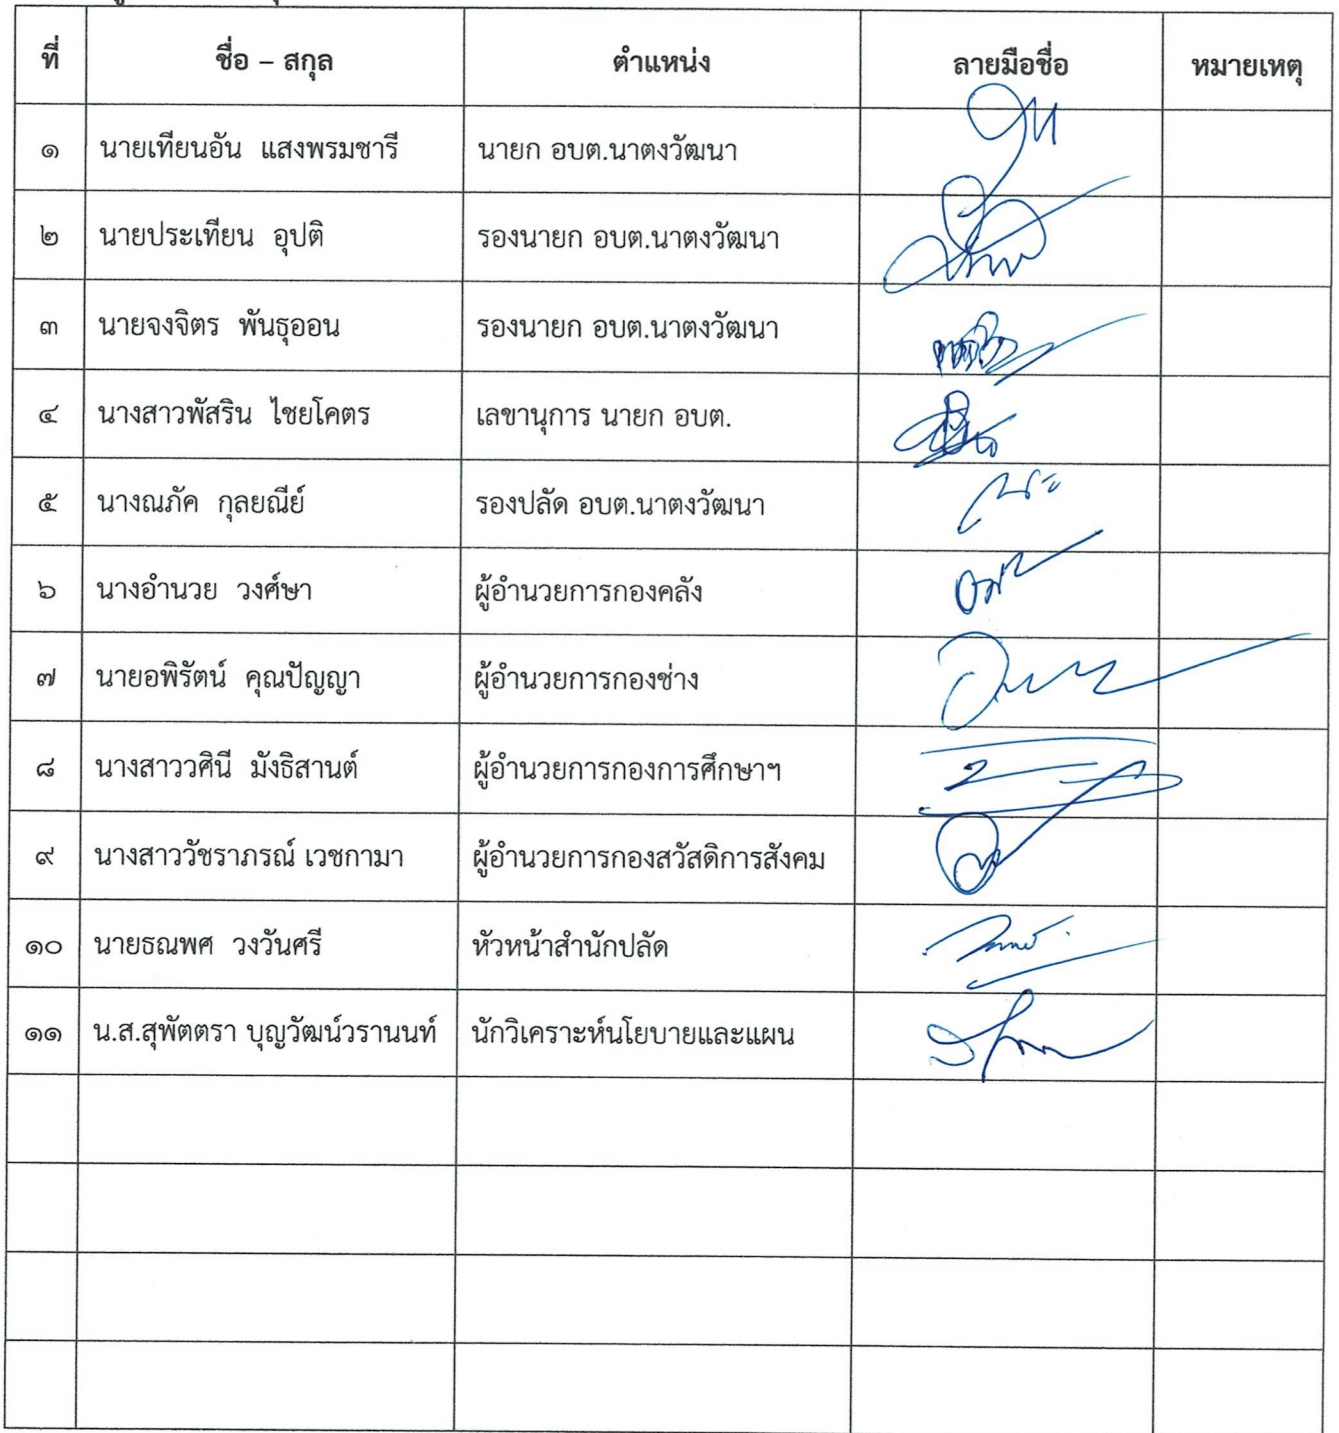 ที่ ชื่อ – สกุล ตำแหน่ง ลายมือชื่อ หมายเหตุ
๑ นายเทียนอัน แสงพรมชารี นายก อบต.นาตงวัฒนา
๒ นายประเทียน อุปติ รองนายก อบต.นาตงวัฒนา
๓ นายจงจิตร พันธุออน รองนายก อบต.นาตงวัฒนา
๔ นางสาวพัสริน ไชยโคตร เลขานุการ นายก อบต.
๕ นางณภัค กุลยณีย์ รองปลัด อบต.นาตงวัฒนา
๖ นางอำนวย วงศ์ษา ผู้อำนวยการกองคลัง
๗ นายอพิรัตน์ คุณปัญญา ผู้อำนวยการกองช่าง
๘ นางสาววศินี มังธิสานต์ ผู้อำนวยการกองการศึกษาฯ
๙ นางสาววัชราภรณ์ เวชกามา ผู้อำนวยการกองสวัสดิการสังคม
๑๐ นายธณพศ วงวันศรี หัวหน้าสำนักปลัด
๑๑ น.ส.สุพัตตรา บุญวัฒน์วรานนท์ นักวิเคราะห์นโยบายและแผน